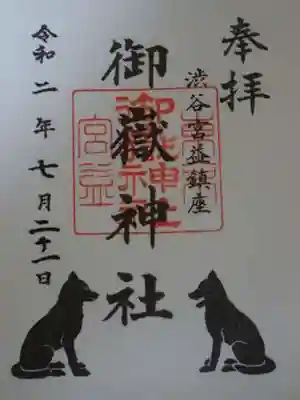 奉拝
渋谷宮益鎮座
御嶽神社
令和二年七月二十一日
宮益
御嶽神社